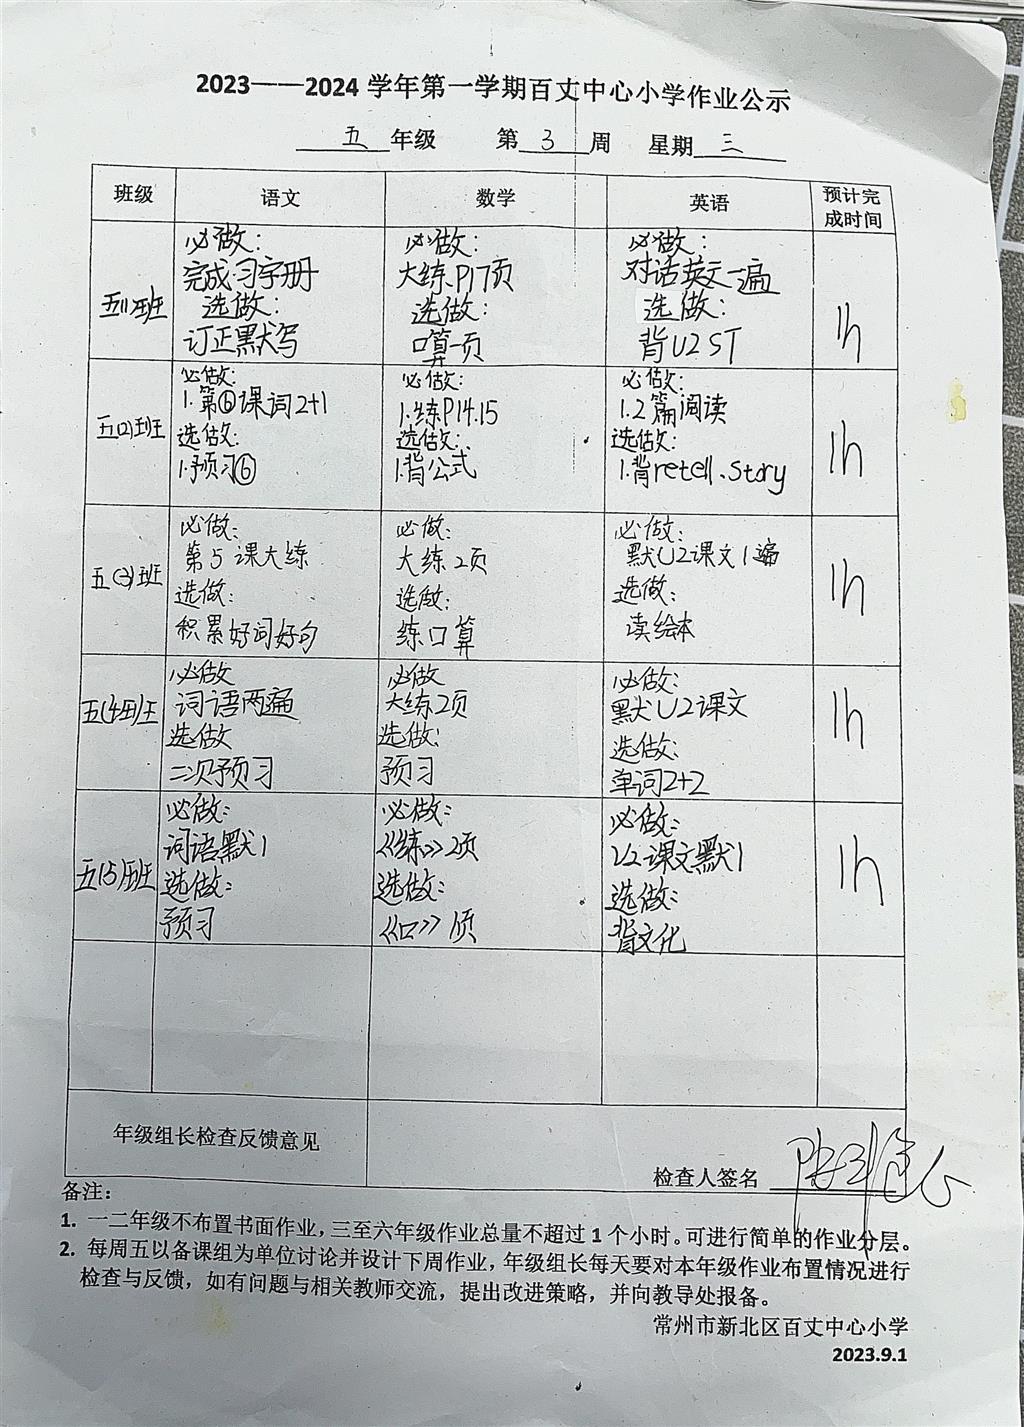 2023——2024 学年第一学期百丈中心小学作业公示
五 年级 第 3 周 星期 三
班级 语文 数学 英语 预计完成时间
五(1)班
必做：
完成习字册
选做：
订正默写
必做：
大练P17页
选做：
口算一页
必做：
对话英文一遍
选做：
背U2 ST
1h
五(2)班
必做：
1.第⑥课词2+1
选做：
1.预习⑥
必做：
1.练P14.15
选做：
1.背公式
必做：
1.2篇阅读
选做：
1.背retell、story
1h
五(3)班
必做：
第5课大练
选做：
积累好词好句
必做：
大练2页
选做：
练口算
必做：
默U2课文1遍
选做：
读绘本
1h
五(4)班
必做
词语两遍
选做
二次预习
必做
大练2页
选做：
预习
必做：
默U2课文
选做：
单词2+2
1h
五(5)班
必做：
词语默1
选做：
预习
必做：
《练》2页
选做：
《口》1页
必做：
U2课文默1
选做：
背文化
1h
年级组长检查反馈意见
检查人签名
备注：
1. 一二年级不布置书面作业，三至六年级作业总量不超过 1 个小时。可进行简单的作业分层。
2. 每周五以备课组为单位讨论并设计下周作业，年级组长每天要对本年级作业布置情况进行
检查与反馈，如有问题与相关教师交流，提出改进策略，并向教导处报备。
常州市新北区百丈中心小学
2023.9.1